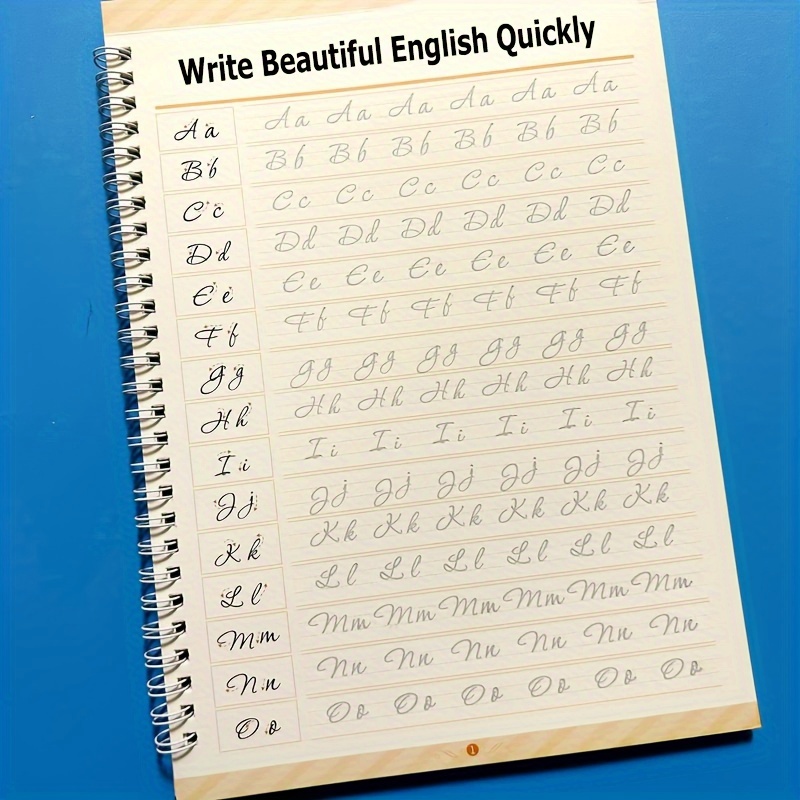 Write Beautiful English Quickly
Aa Aa Aa Aa Aa Aa Aa
Bb Bb Bb Bb Bb Bb Bb
Cc Cc Cc Cc Cc Cc Cc
Dd Dd Dd Dd Dd Dd Dd
Ee Ee Ee Ee Ee Ee Ee
Ff Ff Ff Ff Ff Ff Ff
Gg Gg Gg Gg Gg Gg Gg
Hh Hh Hh Hh Hh Hh Hh
Ii Ii Ii Ii Ii Ii Ii
Jj Jj Jj Jj Jj Jj Jj
Kk Kk Kk Kk Kk Kk Kk
Ll Ll Ll Ll Ll Ll Ll
Mm Mm Mm Mm Mm Mm Mm
Nn Nn Nn Nn Nn Nn Nn
Oo Oo Oo Oo Oo Oo Oo
1